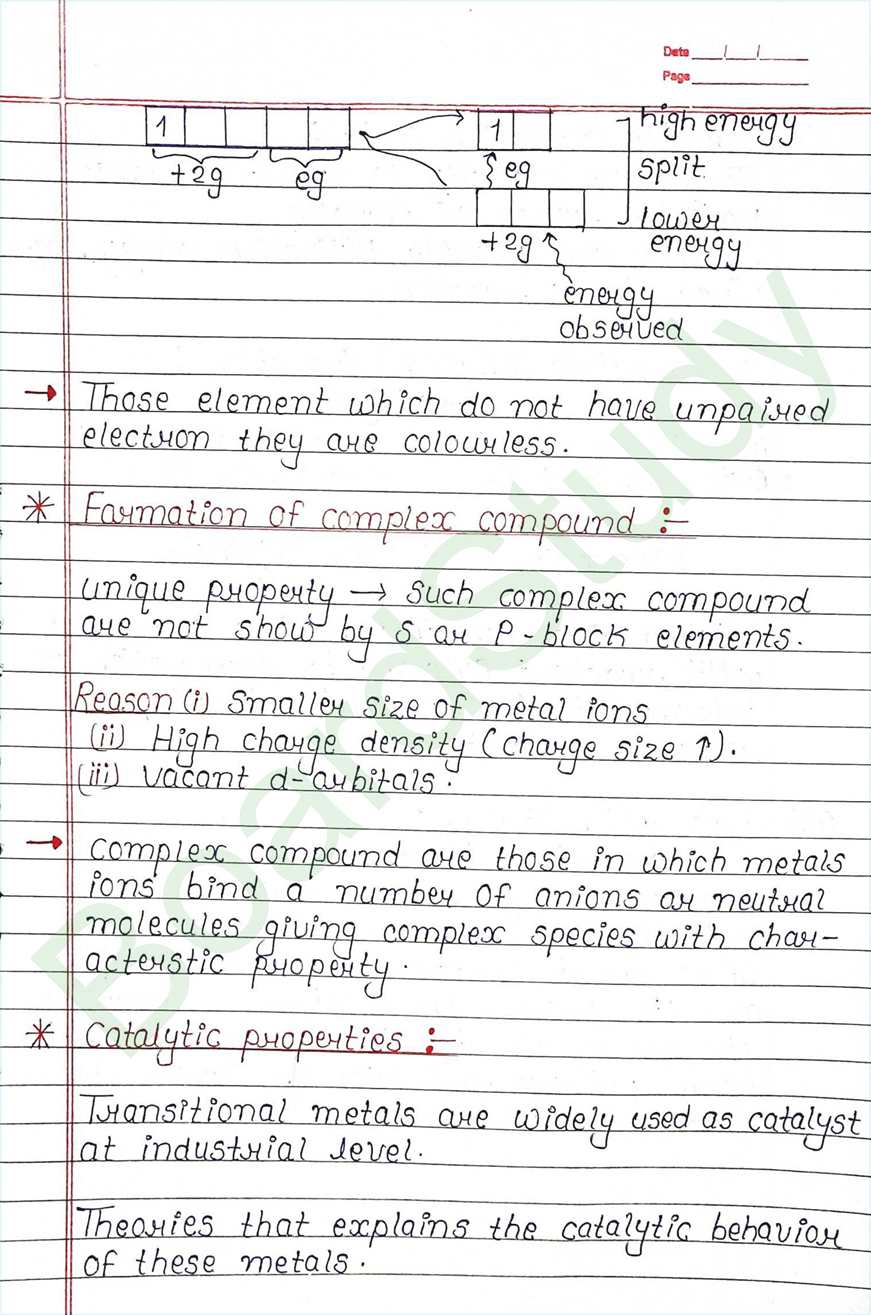 Date / /
Page
1 1 high energy
+2g eg eg split
lower
+2g energy
energy
observed
→ Those element which do not have unpaired
electron they are colourless.
* Farmation of complex compound :-
unique property → Such complex compound
are not show by s ar P-block elements.
Reason (i) Smaller size of metal ions
(ii) High charge density (charge size ↑).
(iii) vacant d-arbitals.
→ complex compound are those in which metals
ions bind a number of anions ar neutral
molecules giving complex species with char-
acterstic property.
* Catalytic properties :-
Transitional metals are widely used as catalyst
at industrial level.
Theories that explains the catalytic behavior
of these metals.
BoardStudy